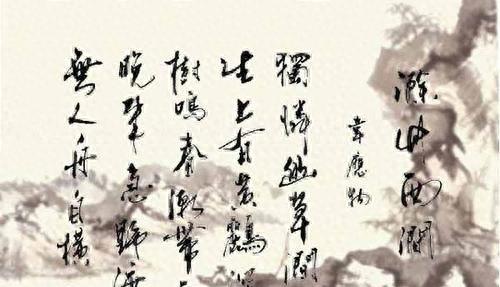 滁州西澗
韋應物
獨憐幽草澗
生上有黃鸝深
樹鳴春潮帶
晚來急野渡
無人舟自橫